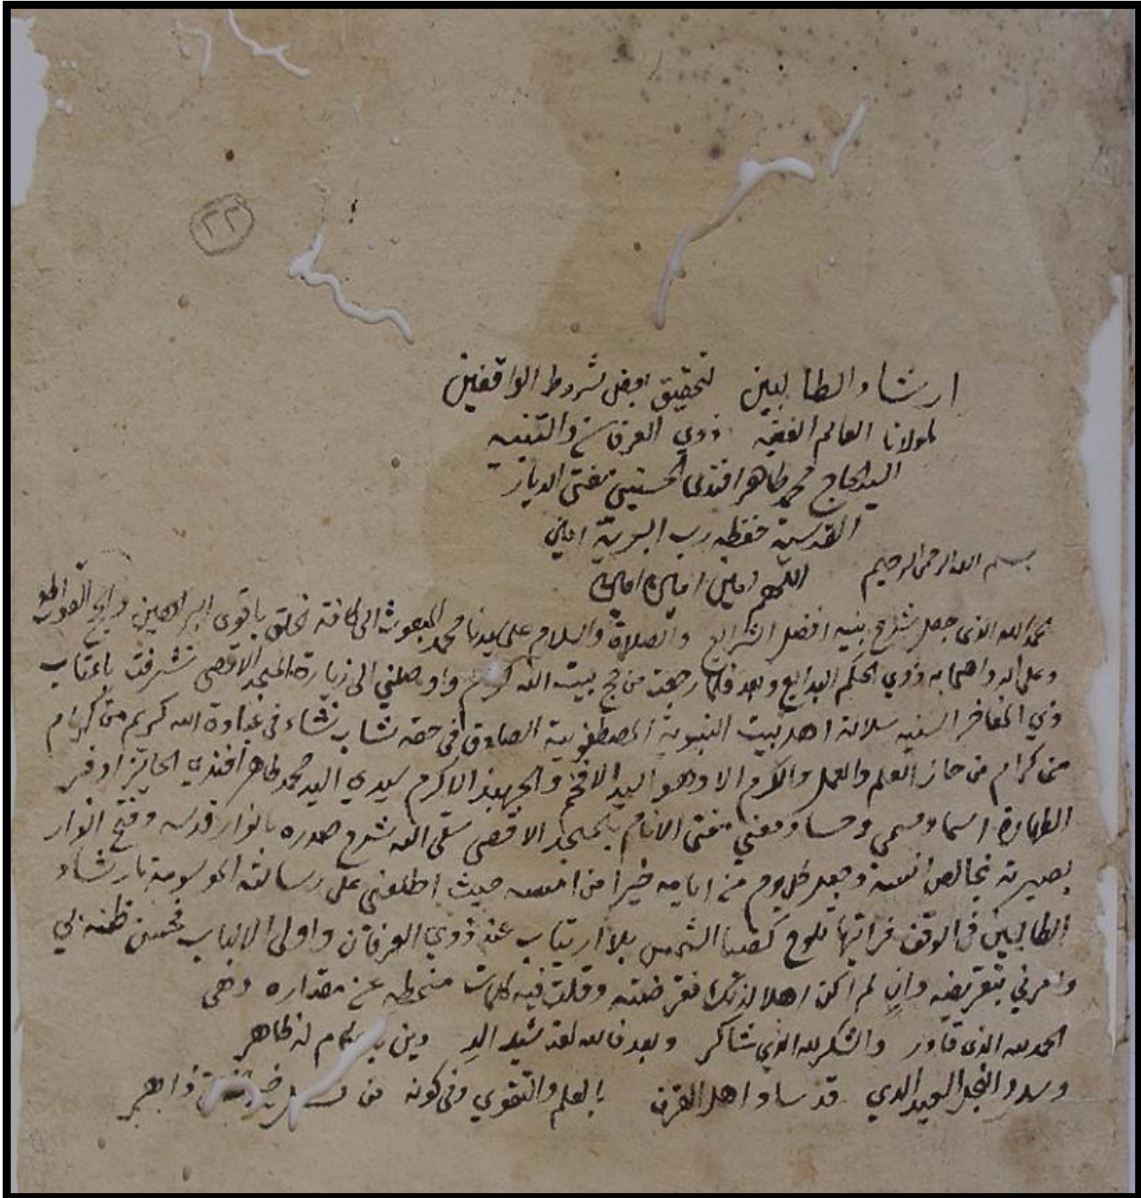 ٢٢
ارشاد الطالبين لتحقيق بعض شروط الواقفين
لمولانا العالم الفقيه ذوي العرفان والتنبيه
السيد الحاج محمد طاهر افندي الحسيني مفتي الديار
القدسية حفظه رب البرية امين
اللهم امين امين امين
بسم الله الرحمن الرحيم
نحمد الله الذي جعل شرع نبيه افضل الشرائع والصلاة والسلام على سيدنا محمد المبعوث الى كافة الخلق باقوى البراهين
وعلى اله واصحابه ذوي الحكم البدائع وبعد فلما رجعت من حج بيت الله واوصلني الى زيارة المسجد الاقصى تشرفت باعتاب
ذي المفاخر السنيه سلالة اهل بيت النبوية المصطفوية الصادق في حقه شاب نشاء في عبادة الله كريم من كرام
من كرام من حاز العلم والعمل والكرم الا وهو السيد الافخم والجهبذ الاكرم سيدي السيد محمد طاهر افندي الحائز اوفر
الطهارة اسما ومسمى وحسا ومعنى مفتي الانام بالمسجد الاقصى شرح صدره بانوار قدسه وفتح انوار
بصيرته بخالص انسه وجعل كل يوم من ايامه خيرا من امسه حيث اطلعني على رسالته الموسومة بارشاد
الطالبين في الوقف فرايتها تلوح كضياء الشمس بلا ارتياب عند ذوي العرفان واولى الالباب فحسن ظنه بي
وامرني بتقريضه وان لم اكن اهلا لذلك فقرضته وقلت فيه كلمات منحطه عن مقداره وهي
الحمد لله الذي قادر والشكر لله الذي شاكر وبعد فالله لقد شيد الد دين لنا ظاهر
قد ساد اهل القرن بالعلم والتقوى وفي كونه من زاهر